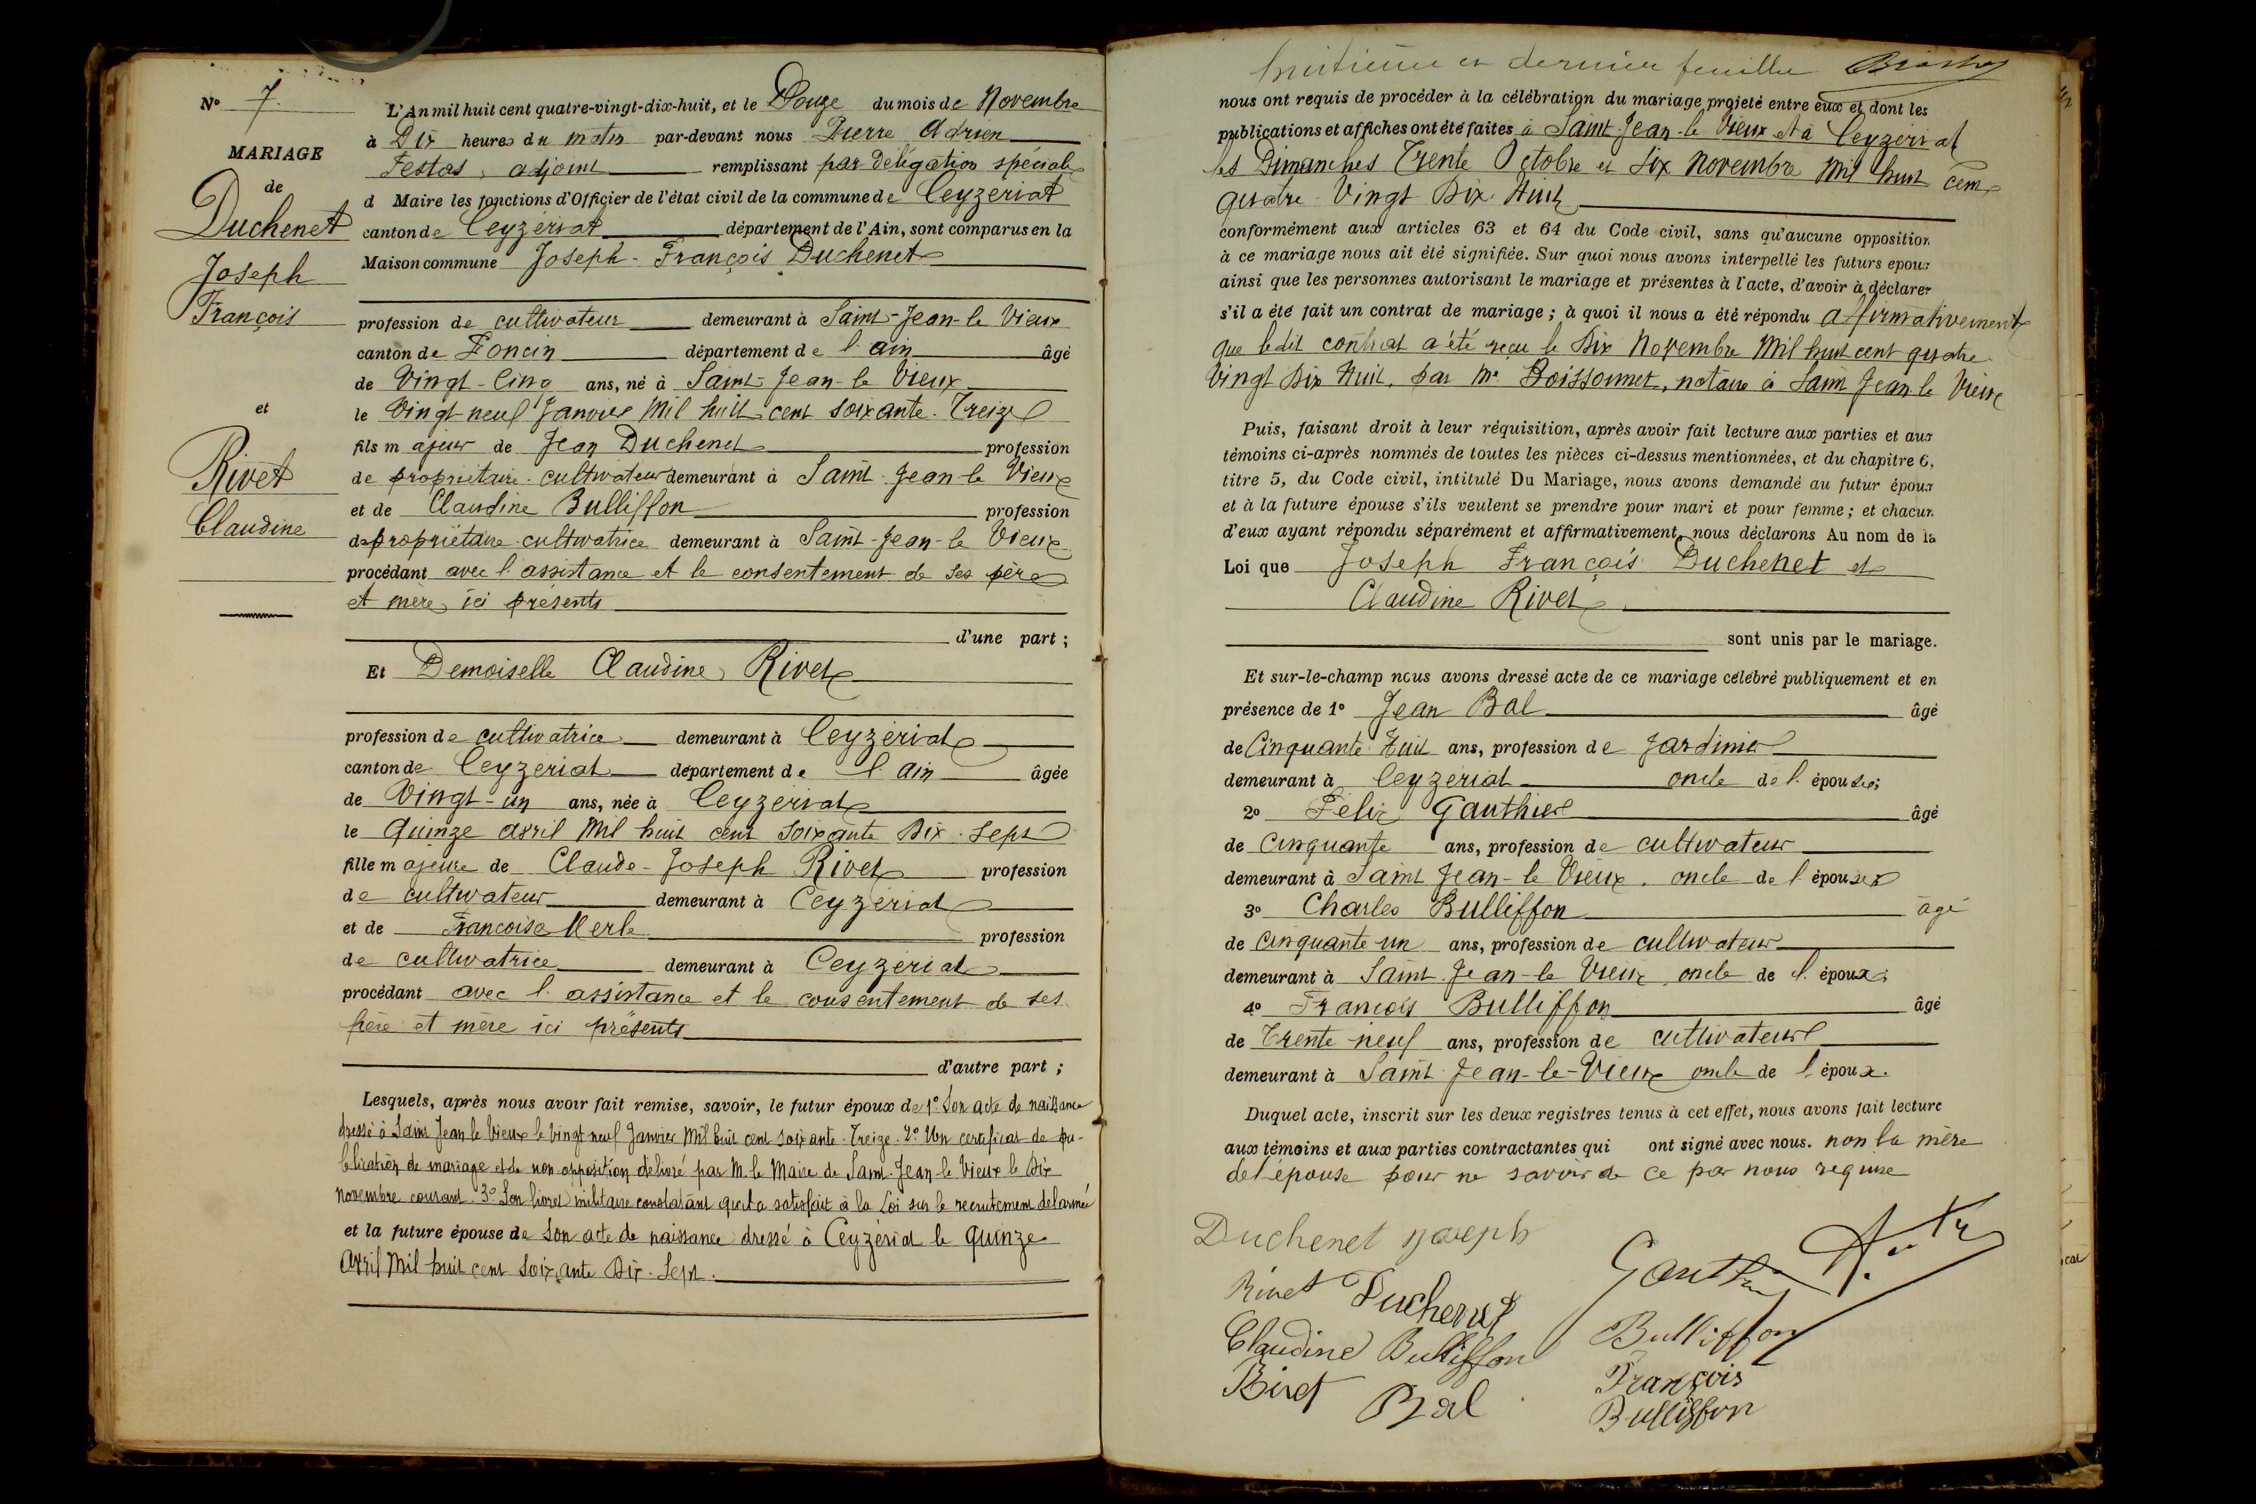 N° 7.
MARIAGE
de
Duchenet
Joseph
François
et
Rivet
Claudine
L'An mil huit cent quatre-vingt-dix-huit, et le Douze du mois de Novembre
à Dix heures du matin par-devant nous Pierre Adrien
Festas, adjoint remplissant par délégation spéciale
d Maire les fonctions d'Officier de l'état civil de la commune de Ceyzeriat
canton de Ceyzériat département de l'Ain, sont comparus en la
Maison commune Joseph-François Duchenet
profession de cultivateur demeurant à Saint-Jean-le Vieux
canton de Poncin département de l'ain âgé
de Vingt-Cinq ans, né à Saint-Jean-le Vieux
le Vingt-neuf Janvier Mil huit cent soixante-Treize
fils majeur de Jean Duchenet profession
de propriétaire-cultivateur demeurant à Saint-Jean-le Vieux
et de Claudine Bulliffon profession
de propriétaire-cultivatrice demeurant à Saint-Jean-le Vieux
procédant avec l'assistance et le consentement de ses père
et mère, ici présents
d'une part ;
Et Demoiselle Claudine Rivet
profession de cultivatrice demeurant à Ceyzériat
canton de Ceyzeriat département de l'ain âgée
de Vingt-un ans, née à Ceyzériat
le Quinze avril Mil huit cent soixante Dix-Sept
fille majeure de Claude-Joseph Rivet profession
de cultivateur demeurant à Ceyzériat
et de Francoise Merle profession
de cultivatrice demeurant à Ceyzériat
procédant avec l'assistance et le consentement de ses
père et mère ici présents
d'autre part ;
Lesquels, après nous avoir fait remise, savoir, le futur époux de 1° Son acte de naissance
dressé à Saint Jean le Vieux le Vingt neuf Janvier Mil huit cent soixante-Treize. 2° Un certificat de pu-
blication de mariage et de non opposition délivré par M. le Maire de Saint-Jean-le Vieux le Dix
novembre courant. 3° Son livret militaire constatant qu'il a satisfait à la Loi sur le recrutement de l'armée
et la future épouse de Son acte de naissance dressé à Ceyzériat le quinze
avril Mil huit cent Soixante Dix-Sept.
huitième et dernier feuillet
nous ont requis de procéder à la célébration du mariage projeté entre eux et dont les
publications et affiches ont été faites à Saint-Jean-le Vieux et à Ceyzériat
les Dimanches Trente Octobre et Six Novembre Mil huit cent
quatre-Vingt Dix-Huit
conformément aux articles 63 et 64 du Code civil, sans qu'aucune opposition
à ce mariage nous ait été signifiée. Sur quoi nous avons interpellé les futurs epoux
ainsi que les personnes autorisant le mariage et présentes à l'acte, d'avoir à déclarer
s'il a été fait un contrat de mariage ; à quoi il nous a été répondu affirmativement
que ledit contrat a été reçu le Dix Novembre Mil huit cent quatre
Vingt Dix Huit, par Me Boissonnet, notaire à Saint Jean le Vieux
Puis, faisant droit à leur réquisition, après avoir fait lecture aux parties et aux
témoins ci-après nommés de toutes les pièces ci-dessus mentionnées, et du chapitre 6,
titre 5, du Code civil, intitulé Du Mariage, nous avons demandé au futur époux
et à la future épouse s'ils veulent se prendre pour mari et pour femme ; et chacun
d'eux ayant répondu séparément et affirmativement, nous déclarons Au nom de la
Loi que Joseph François Duchenet et
Claudine Rivet
sont unis par le mariage.
Et sur-le-champ nous avons dressé acte de ce mariage célébré publiquement et en
présence de 1° Jean Bal âgé
de Cinquante-Huit ans, profession de Jardinier
demeurant à Ceyzériat oncle de l'épouse;
2° Félix Gauthier âgé
de Cinquante ans, profession de cultivateur
demeurant à Saint Jean-le Vieux, oncle de l'épouse
3° Charles Bulliffon âgé
de Cinquante-un ans, profession de cultivateur
demeurant à Saint-Jean-le Vieux, oncle de l'époux;
4° Francois Bulliffon âgé
de Trente-neuf ans, profession de cultivateur
demeurant à Saint-Jean-le-Vieux oncle de l'époux.
Duquel acte, inscrit sur les deux registres tenus à cet effet, nous avons fait lecture
aux témoins et aux parties contractantes qui ont signé avec nous. non la mère
de l'épouse pour ne savoir de ce par nous requise
Duchenet joseph
Rivet Duchenet
Gauthier
Claudine Bulliffon
Bulliffon
Rivet Bal
François
Bulliffon